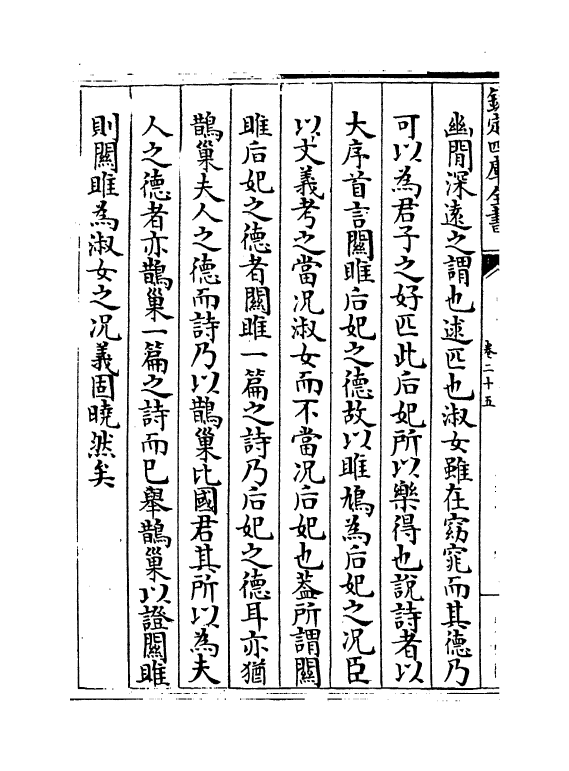 欽定四庫全書
卷二十五
幽閒深遠之謂也逑匹也淑女雖在窈窕而其德乃
可以為君子之好匹此后妃所以樂得也說詩者以
大序首言關雎后妃之德故以雎鳩為后妃之况臣
以文義考之當况淑女而不當况后妃也葢所謂關
雎后妃之德者關雎一篇之詩乃后妃之德耳亦猶
鵲巢夫人之德而詩乃以鵲巢比國君其所以為夫
人之德者亦鵲巢一篇之詩而已舉鵲巢以證關雎
則關雎為淑女之况義固曉然矣